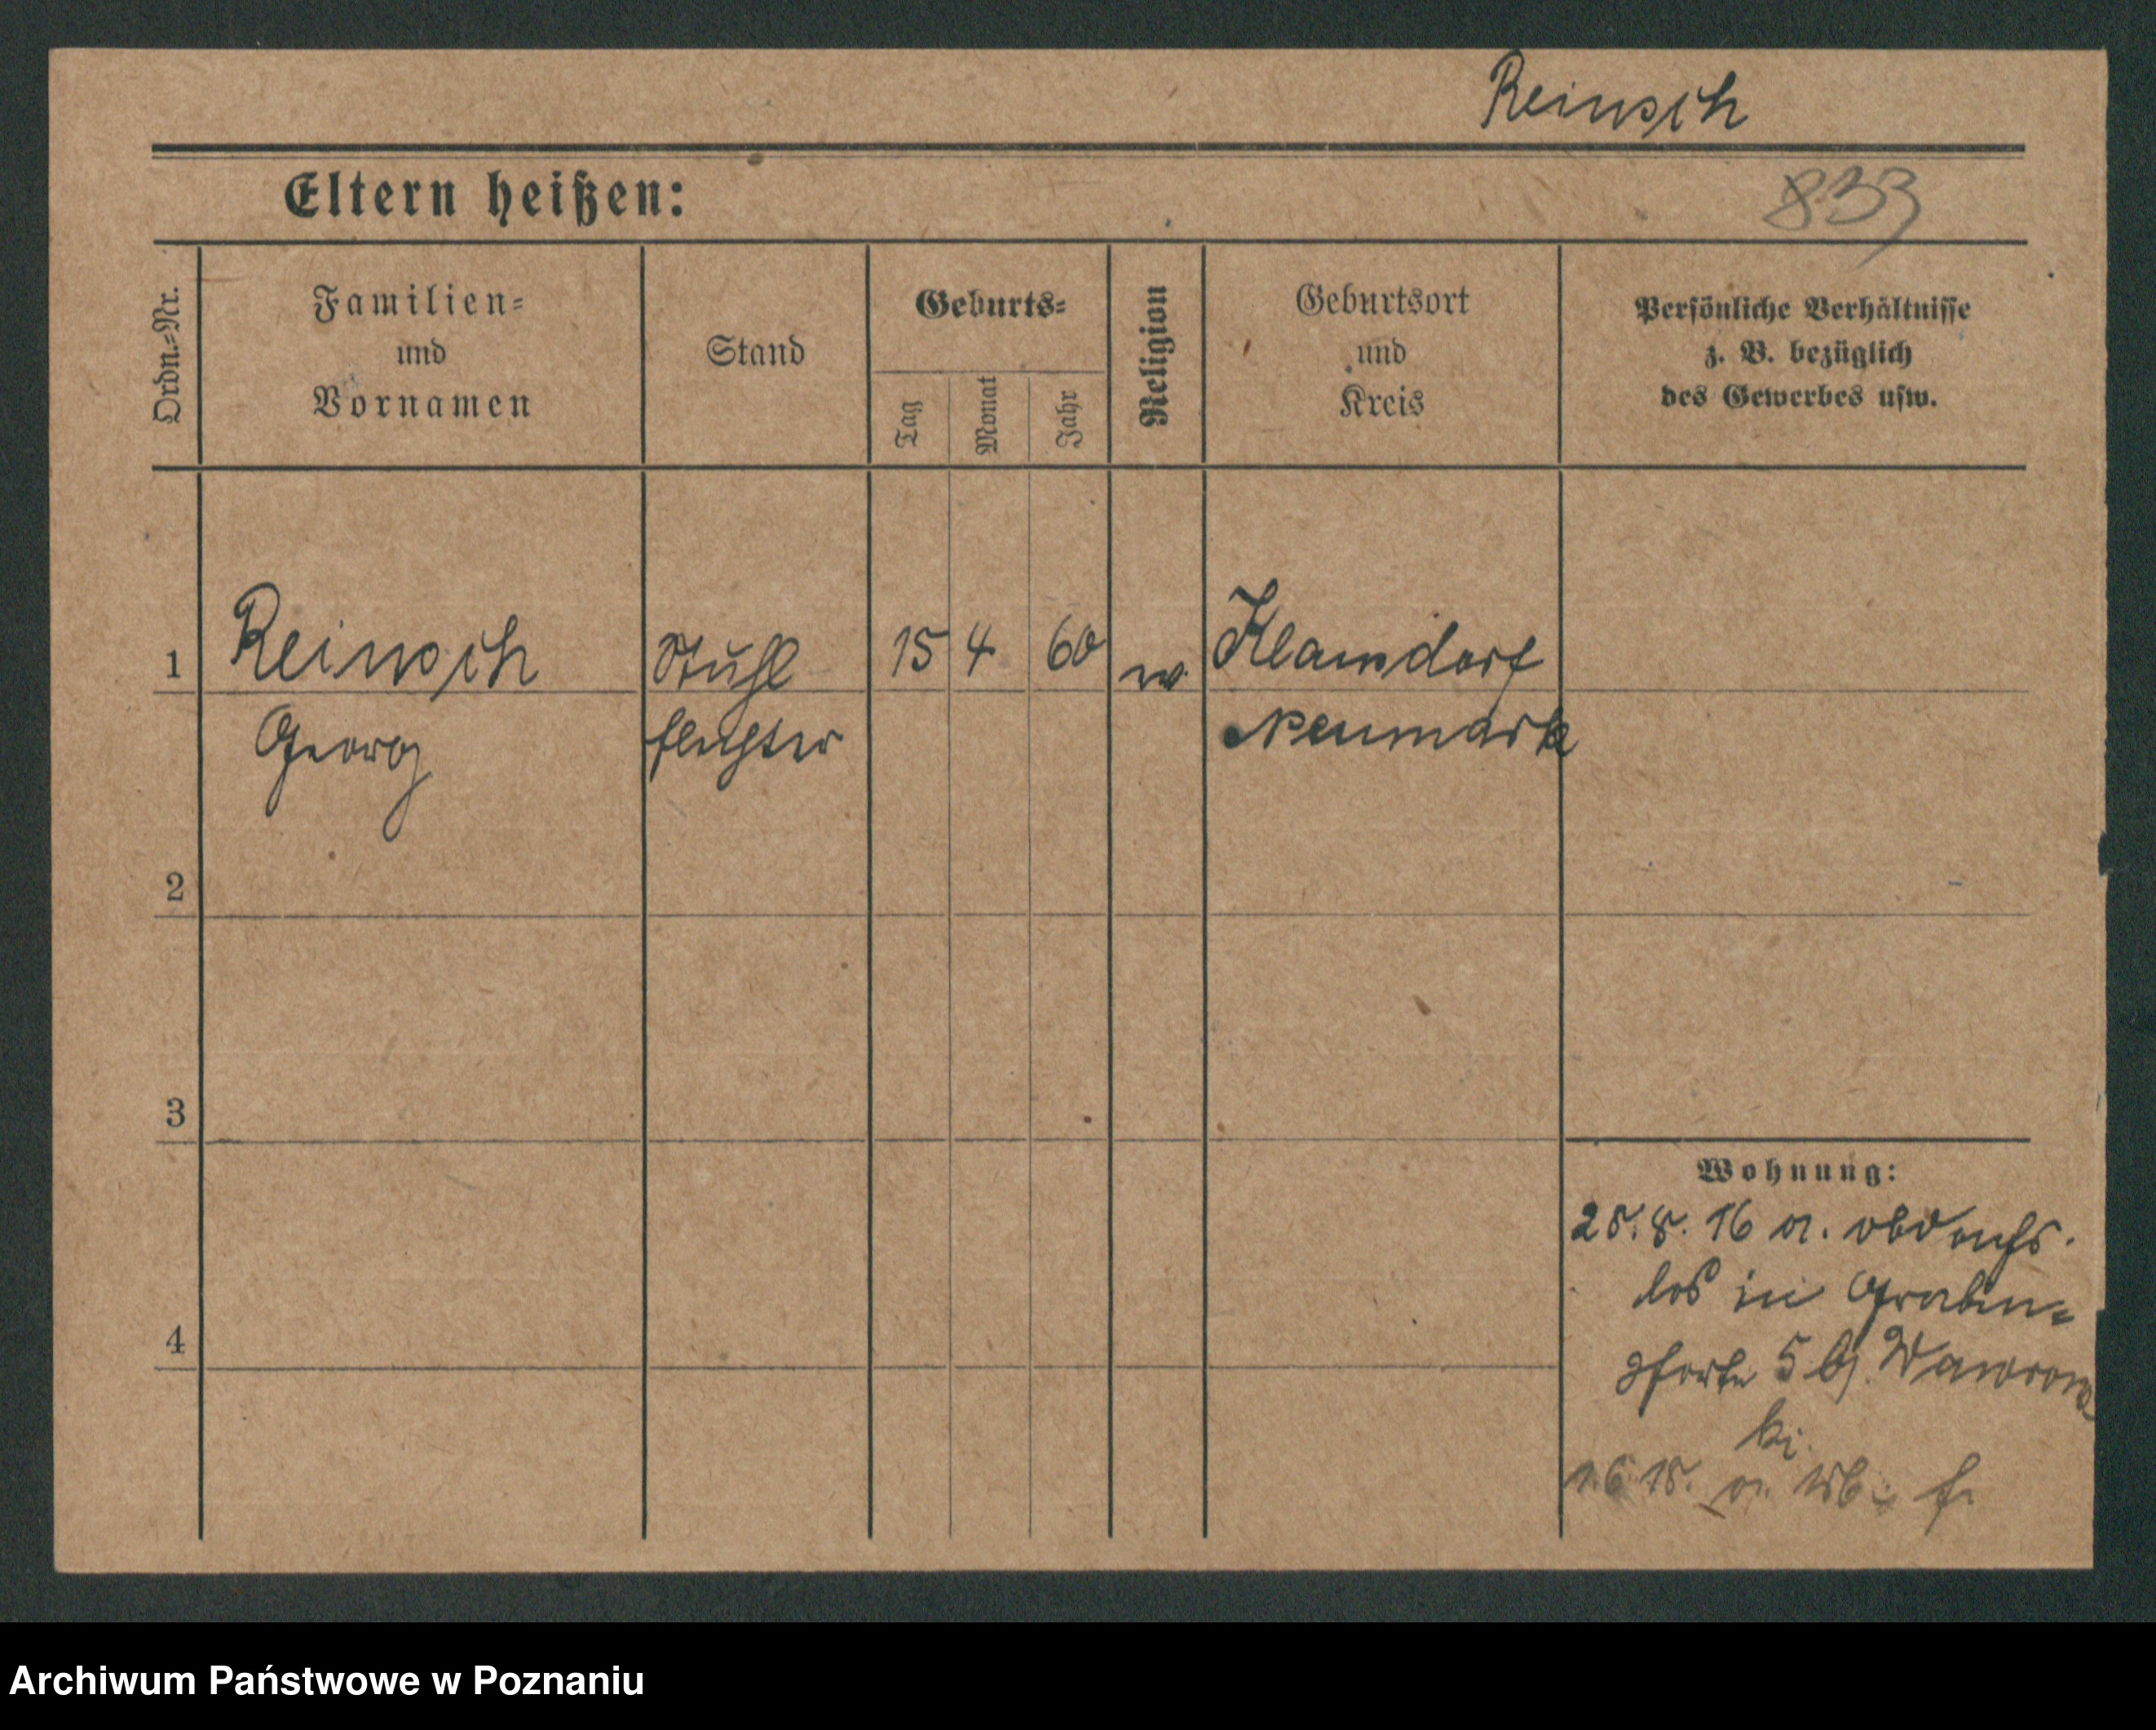 Reinsch
Eltern heißen:
833
Ordn.=Nr.
Familien=
und
Vornamen
Stand
Geburts=
Tag
Monat
Jahr
Religion
Geburtsort
und
Kreis
Persönliche Verhältnisse
z. B. bezüglich
des Gewerbes usw.
1
Reinsch
Stuhl
15 4 60
Klamsdorf
Georg
flechter
Neumark
2
3
Wohnung:
25.8.16 a. obdachs
los in Graben=
pforte 5 bj. Wawrows
ki.
4
1.6.18. a.
Archiwum Państwowe w Poznaniu